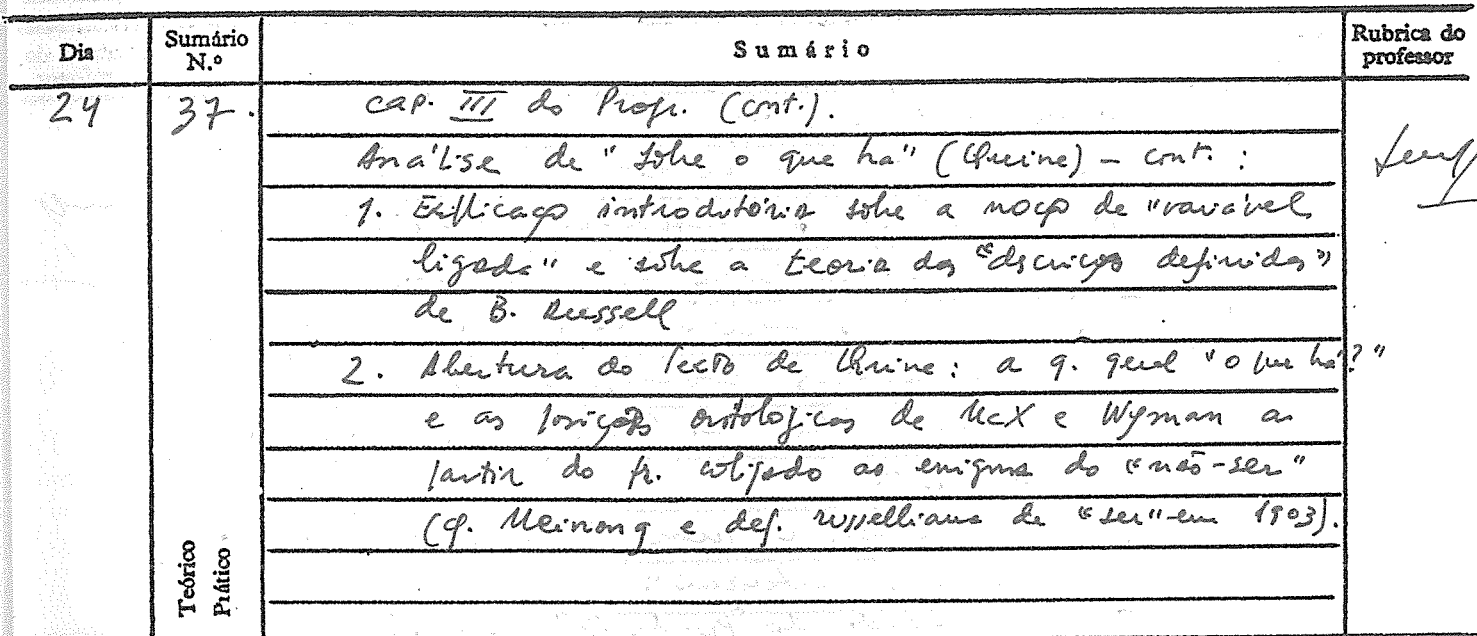 Dia Sumário N.º Sumário Rubrica do professor
24 37. cap. III do Progr. (cont.).
Análise de "Sobre o que há" (Quine) – cont. :
1. Explicação introdutória sobre a noção de "variável
ligada" e sobre a teoria das "descrições definidas"
de B. Russell
2. Abertura do texto de Quine: a q. geral "o que há?"
e as posições ontológicas de McX e Wyman a
partir do pr. coligado ao enigma do "não-ser"
(cf. Meinong e def. russelliana de "ser" em 1903).
Teórico
Prático